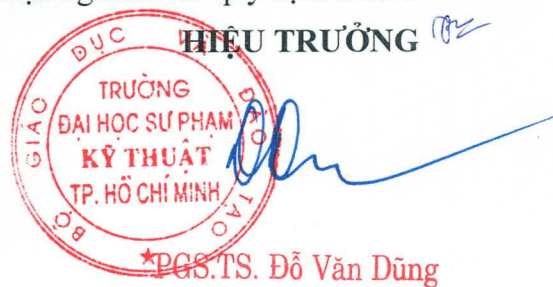 HIỆU TRƯỞNG
BỘ GIÁO DỤC VÀ ĐÀO TẠO
TRƯỜNG
ĐẠI HỌC SƯ PHẠM
KỸ THUẬT
TP. HỒ CHÍ MINH
PGS.TS. Đỗ Văn Dũng